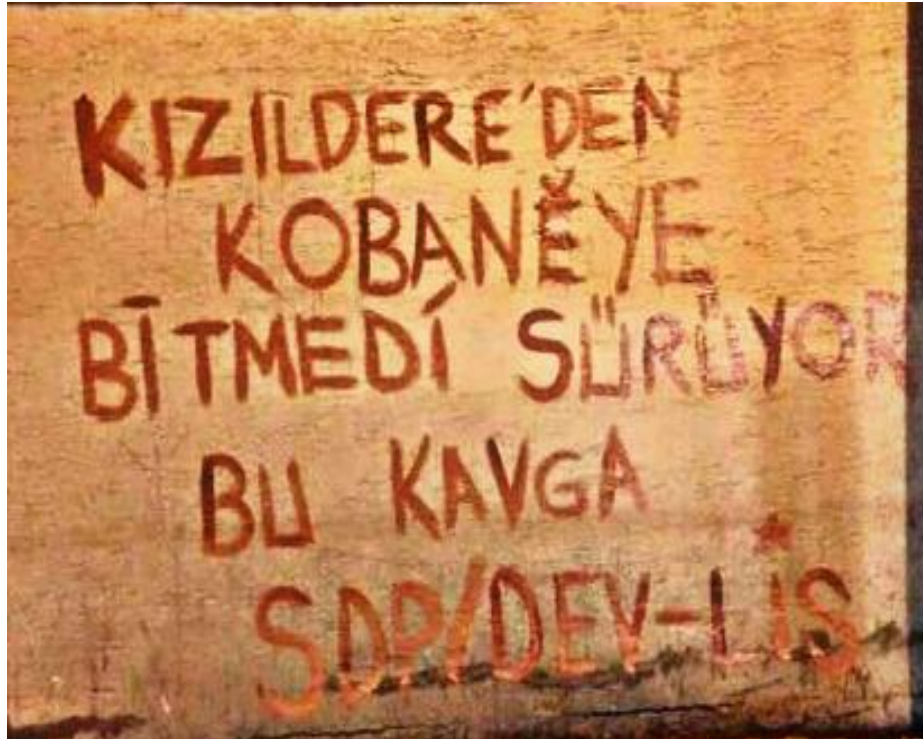 KIZILDERE'DEN
KOBANĚYE
BİTMEDİ SÜRÜYOR
BU KAVGA
SDP/DEV-LİS